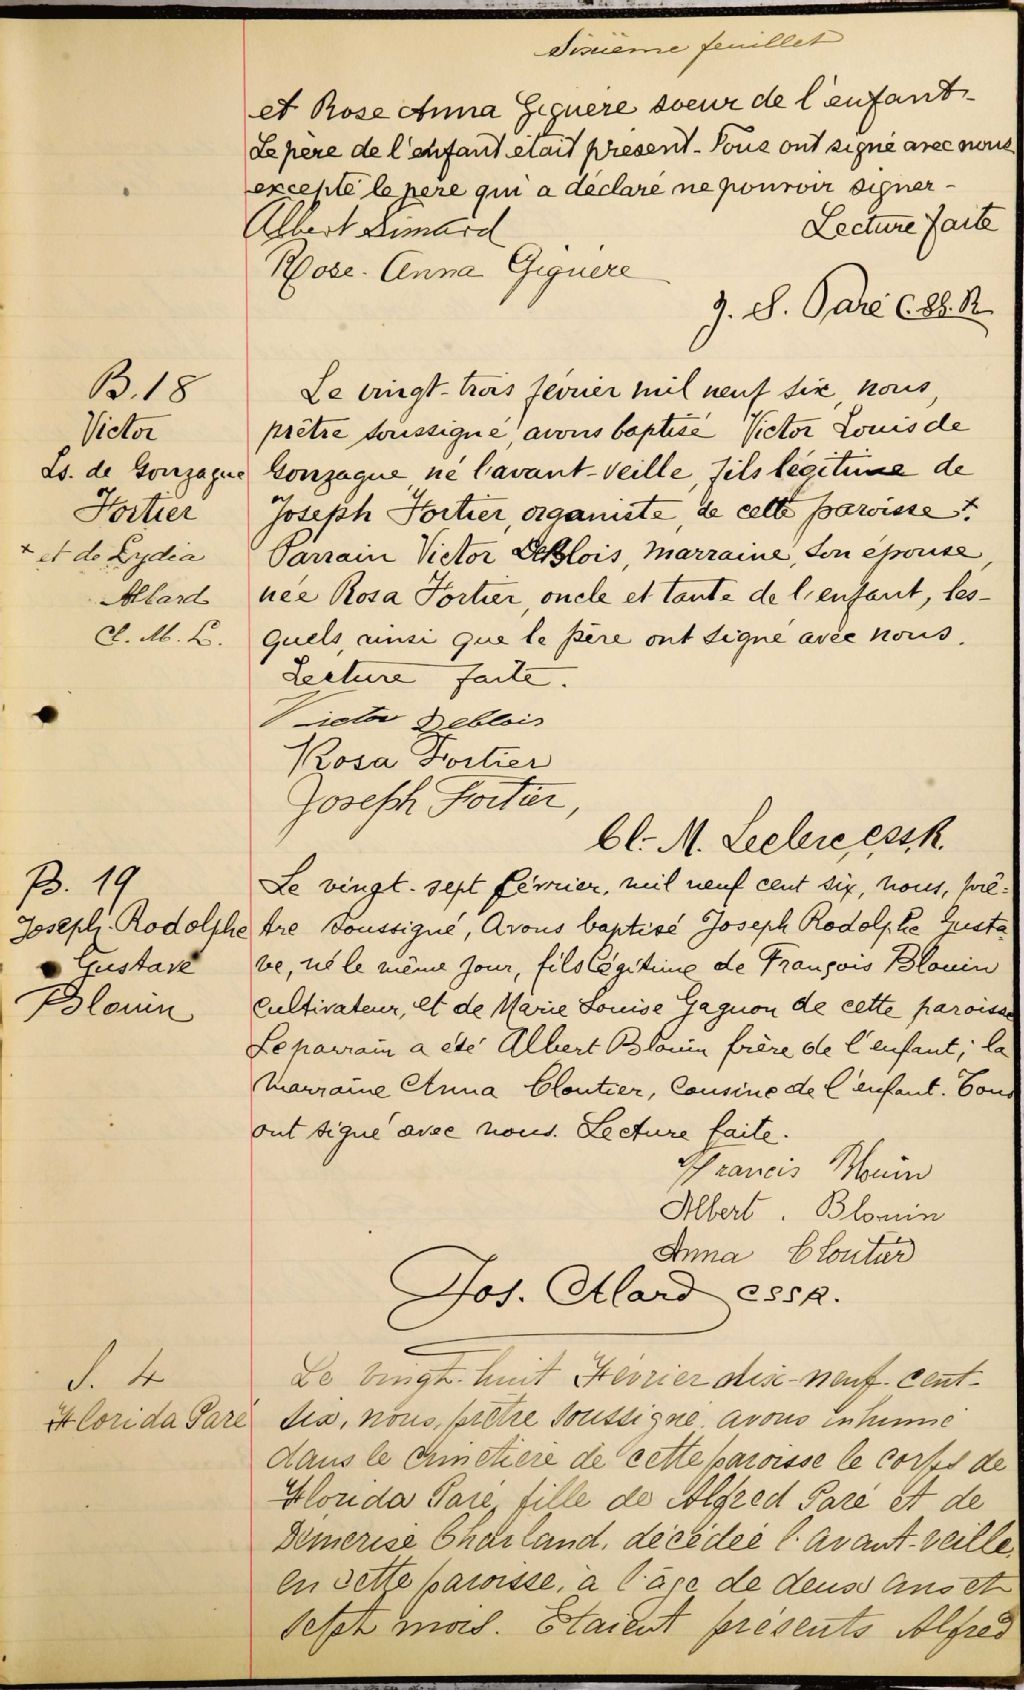 Sixième feuillet
et Rose Anna Giguère soeur de l'enfant-
Le père de l'enfant était présent- Tous ont signé avec nous
excepté le père qui a déclaré ne pouvoir signer-
Albert Simard
Lecture faite
Rose-Anna Giguère
J. S. Paré C.SS.R
B. 18
Victor
Ls. de Gonzague
Fortier
+ et de Lydia
Allard
Cl. M. L.
Le vingt-trois février mil neuf six, nous,
prêtre soussigné, avons baptisé Victor Louis de
Gonzague, né l'avant-veille, fils légitime de
Joseph Fortier, organiste, de cette paroisse +.
Parrain Victor DeBlois, marraine, son épouse,
née Rosa Fortier, oncle et tante de l'enfant, les-
quels, ainsi que le père ont signé avec nous.
Lecture faite.
Victor Deblois
Rosa Fortier
Joseph Fortier,
Cl.-M. Leclerc, C.SS.R.
B. 19
Joseph-Rodolphe
Gustave
Blouin
Le vingt-sept février, mil neuf cent six, nous, prê-
tre soussigné, avons baptisé Joseph Rodolphe Gusta-
ve, né le même jour, fils légitime de François Blouin
cultivateur, et de Marie Louise Gagnon de cette paroisse
Le parrain a été Albert Blouin frère de l'enfant; la
marraine Anna Cloutier, cousine de l'enfant. Tous
ont signé avec nous. Lecture faite.
Francis Blouin
Albert . Blouin
Anna Cloutier
Jos. Alard CSSR.
S. 4
Florida Paré
Le vingt-huit Février dix-neuf-cent-
six, nous, prêtre soussigné, avons inhumé
dans le cimetière de cette paroisse le corps de
Florida Paré, fille de Alfred Paré et de
Démerise Charland, décédée l'avant-veille,
en cette paroisse, à l'âge de deux ans et
sept mois. Etaient présents Alfred